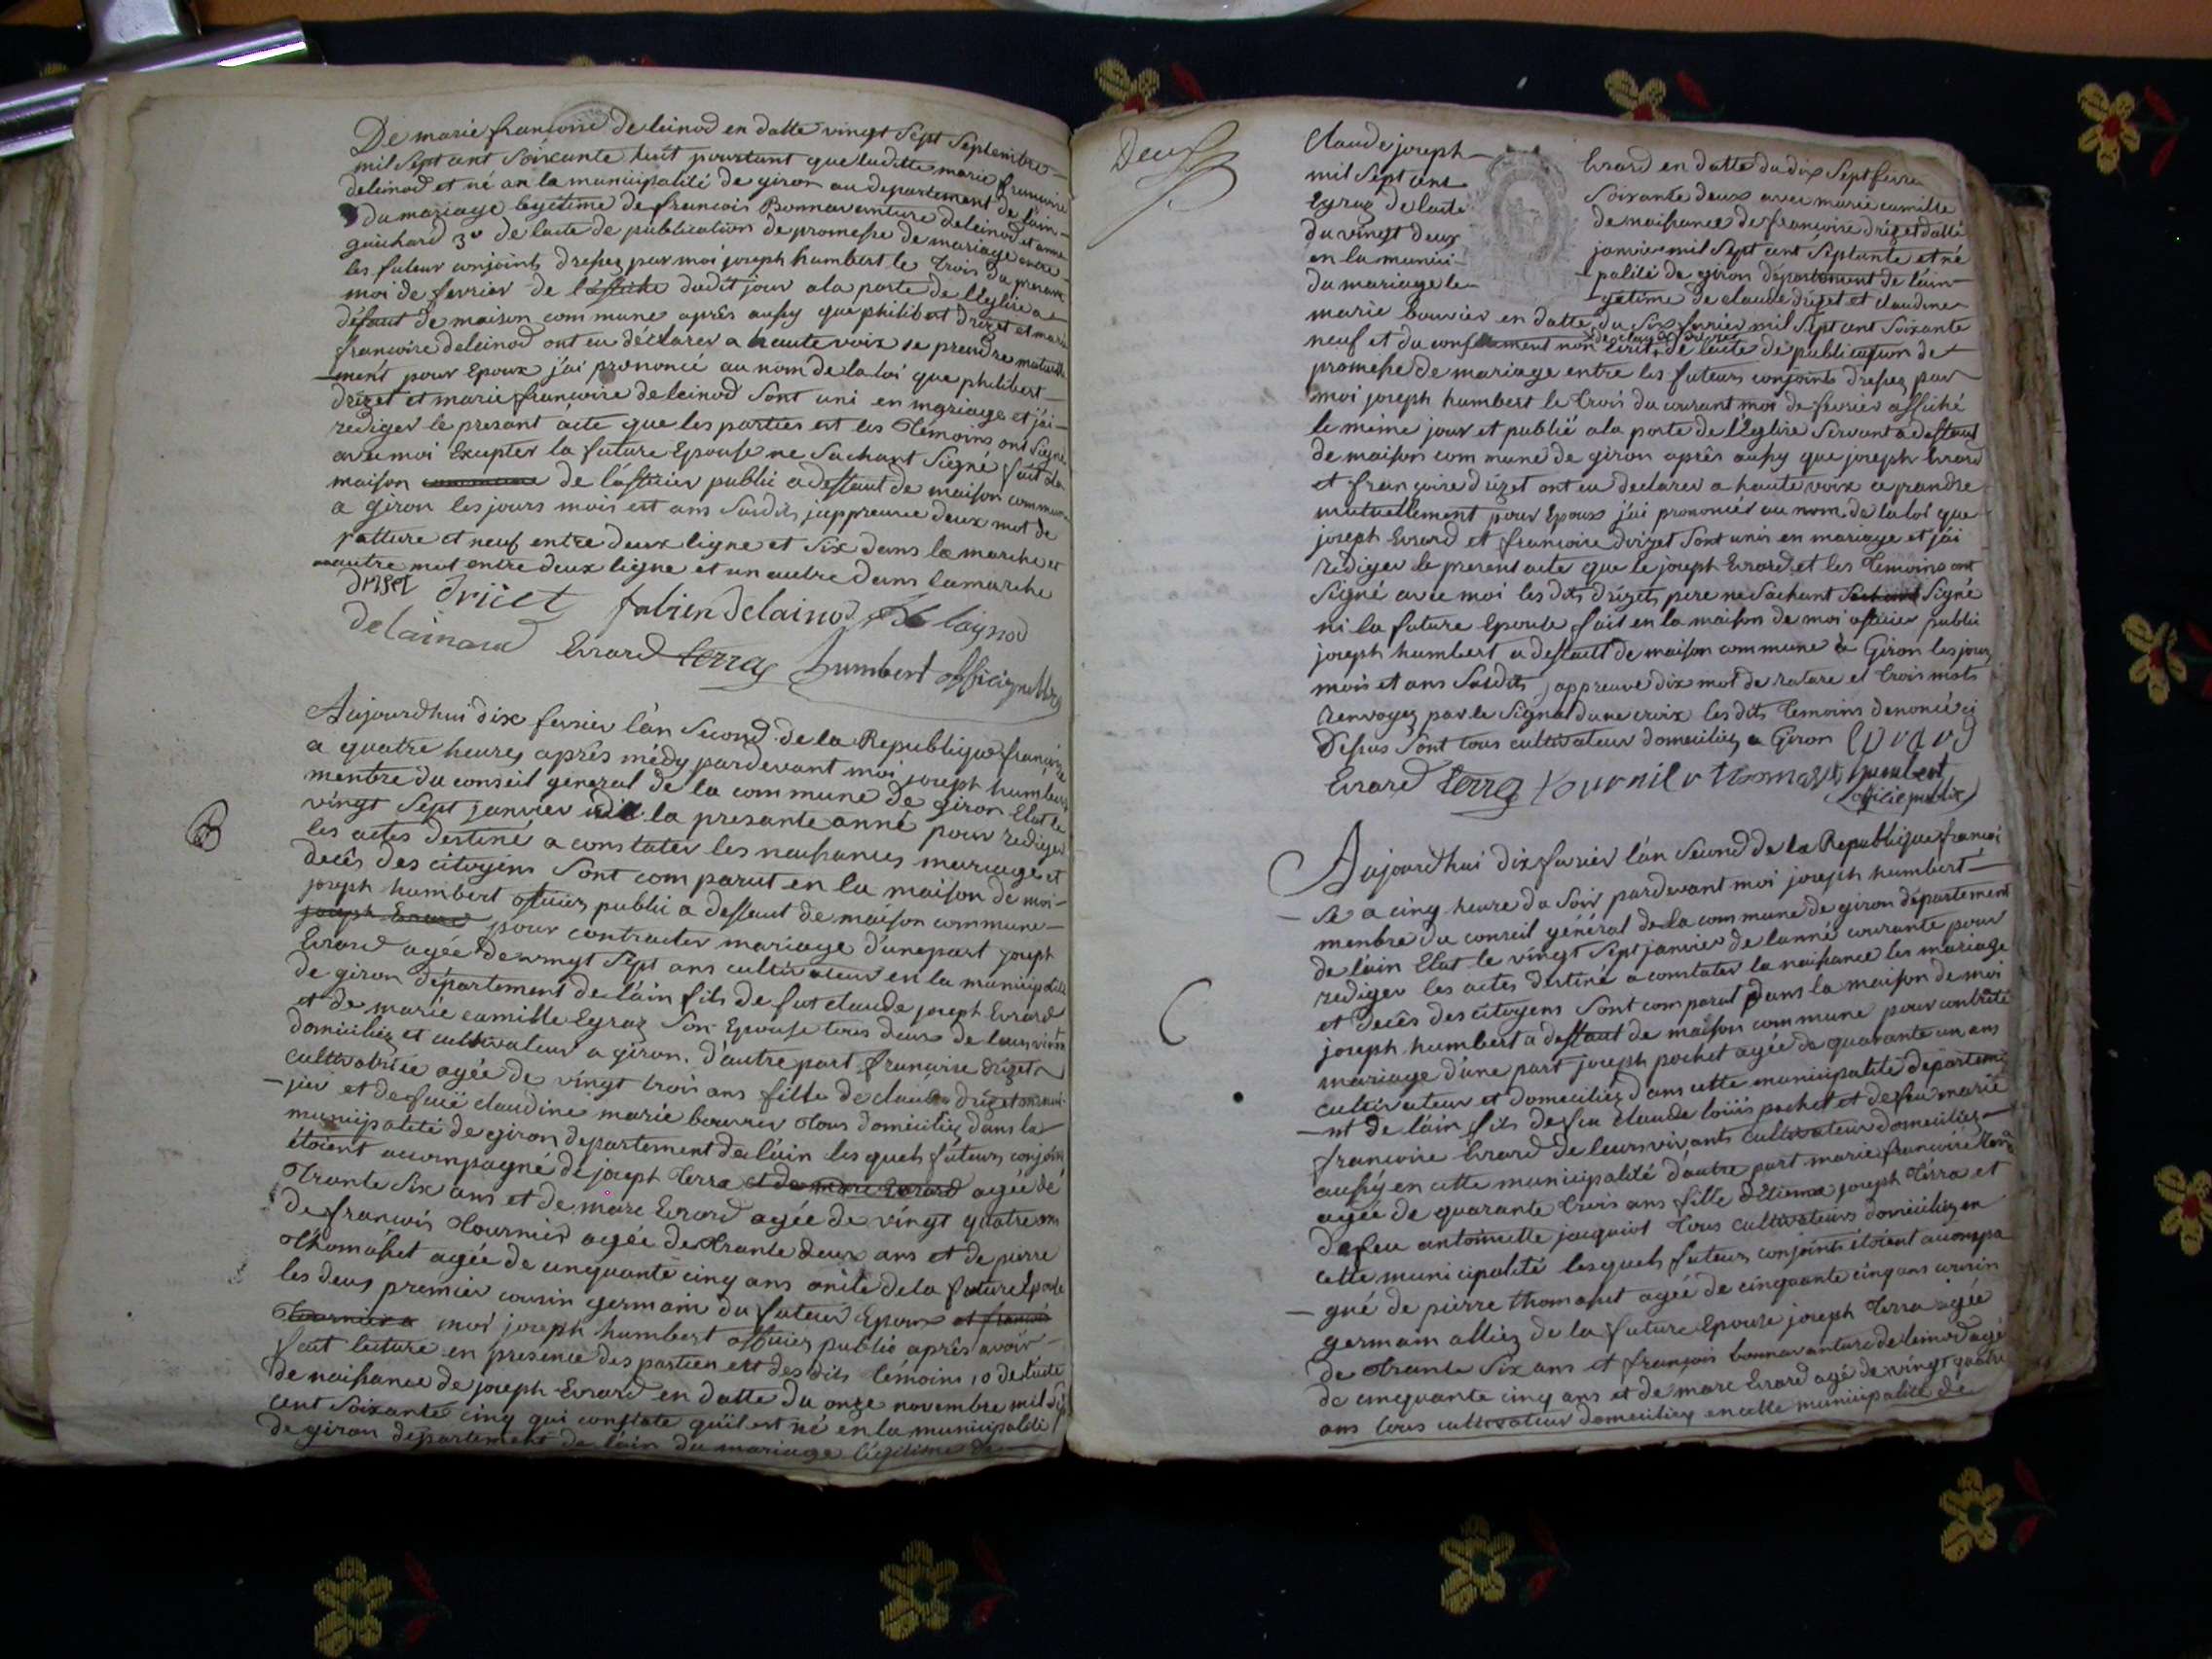 De marie francoise deleinod en datte vingt sept septembre
mil sept cent soixante huit pourtant que laditte marie francoise
deleinod et né an la municipalité de giron au departement de lain
du mariage legitime de francois Bonnavanture deleinod et anne
guichard 3º de lacte de publication de promesse de mariage entre
les futeur conjoints dressez par moi joseph humbert le trois du presant
moi de fevrier de l'affiche dudit jour a la porte de l'Eglise a
défaut de maison commune après aussy que philibert drizet et marie
francoise deleinod ont eu déclarer a haute voix se prendre mutuelle
-ment pour Epoux j'ai prononcé au nom de la loi que philibert
drizet et marie francoise deleinod sont uni en mariage et j'ai
rediger le presant acte que les parties est les témoins ont signé
avec moi Excepter la future Epouse ne sachant signé fait da
maison commune de l'officier public a deffaut de maison commune
a giron les jours mois est ans susdits j'appreuve deux mot de
ratture et neuf entre deux ligne et six dans la marche et
autre mot entre deux ligne et un autre dans la marche
driset driset fabien delainod laynod
delainaud Evrard terraz humbert officier public
Aujourdhui dix fevrier l'an second de la Republique françoise
a quatre heures après médy pardevant moi joseph humbert
menbre du conseil general de la commune de giron Elut le
vingt sept janvier la presante anné pour rediger
les actes destiné a constater les naissances mariage et
decês des citoyens sont comparut en la maison de moi
joseph humbert officier public a deffaut de maison commune
joseph Evrard pour contracter mariage d'une part joseph
B
Evrard agée de vingt sept ans cultivateur en la municipalité
de giron département de l'ain fils de fut claude joseph Evrard
et de marie camille Egraz son Epouse tous deux de leurs vivant
domiciliez et cultivateur a giron. d'autre part francoise drizet
cultivatrice agée de vingt trois ans fille de claude drizet
et de fuë claudine marie bouvier tous domiciliez dans la
municipalité de giron departement de l'ain les quels futeurs conjoin
étoient accompagné de joseph terra et de marc Evrard agée de
trante six ans et de marc Evrard agée de vingt quatre ans
de francois tournier agée de trante deux ans et de pierre
thomasset agée de cinquante cinq ans oncle de la future Epouse
les deux premier cousin germain du futeur Epoux et francois
tournier a moi joseph humbert officier public après avoir
fait lecture en presence des parties est des dits témoins 1º de l'acte
de naissance de joseph Evrard en datte du onze novembre mil sept
cent soixante cinq qui constate qu'il est né en la municipalité
de giron département de l'ain du mariage legitime de
Deux
Claude joseph Evrard en datte du dix sept fevrier
mil sept cent soixante deux avec marie camille
Egraz de lacte de naissance de francoise drizet datté
du vingt deux janvier mil sept cent septante et né
en la munici- palité de giron département de l'ain
du mariage le- gitime de claude drizet et claudine
marie bouvier en datte du six fevrier mil sept cent soixante
neuf et du consentement non écrit de claude drizet de lacte de publication de
promesse de mariage entre les futeurs conjoints dressez par
moi joseph humbert le trois du courant moi de fevrier affiché
le même jour et publié a la porte de l'Eglise servant a deffaut
de maison commune de giron après aussy que joseph Evrard
et francoise drizet ont eu declarer a haute voix ce prandre
mutuellement pour Epoux j'ai prononcér au nom de la loi que
joseph Evrard et francoise drizet sont unis en mariage et j'ai
rediger le present acte que le joseph Evrard et les temoins ont
signé avec moi les dits drizets pere ne sachant sachant signé
ni la future Epouse fait en la maison de moi officier public
joseph humbert a deffault de maison commune à Giron les jours
mois et ans susdits j appreuve dix mot de rature et trois mots
renvoyez par le signe dune croix les dits temoins denoncé ci
dessus sont tous cultivateur domiciliez a Giron Evrard
Evrard terra tournier thomasset humbert
officie public
Aujourdhui dix fevrier l'an second de la Republique francoi
-se a cinq heure du soir pardevant moi joseph humbert
menbre du conseil général de la commune de giron département
de l'ain Elut le vingt sept janvier de lanné courante pour
rediger les actes destiné a constater la naissance les mariage
et decês des citoyens sont comparut dans la maison de moi
C
joseph humbert a deffaut de maison commune pour contracté
mariage d'une part joseph pochet agée de quarante un ans
cultivateur et domiciliez dans cette municipalité departeme
-nt de l'ain fils de feu claude loüis pochet et de feu marie
francoise Evrard de leurs vivants cultivateur domiciliez
aussy en cette municipalité d'autre part marie francoise terra
agée de quarante trois ans fille d'Etienne joseph térra et
de feu antoinette jacquiot tous cultivateurs domiciliez en
cette municipalité lesquels futeurs conjoints étoient accompa
-gné de pierre thomasset agée de cinquante cinq ans cousin
germain alliez de la future Epouse joseph terra agée
de trante six ans et françois bonnavanture deleinod agé
de cinquante cinq ans et de marc Evrard agé de vingt quatre
ans tous cultivateur domiciliez en cette municipalité de